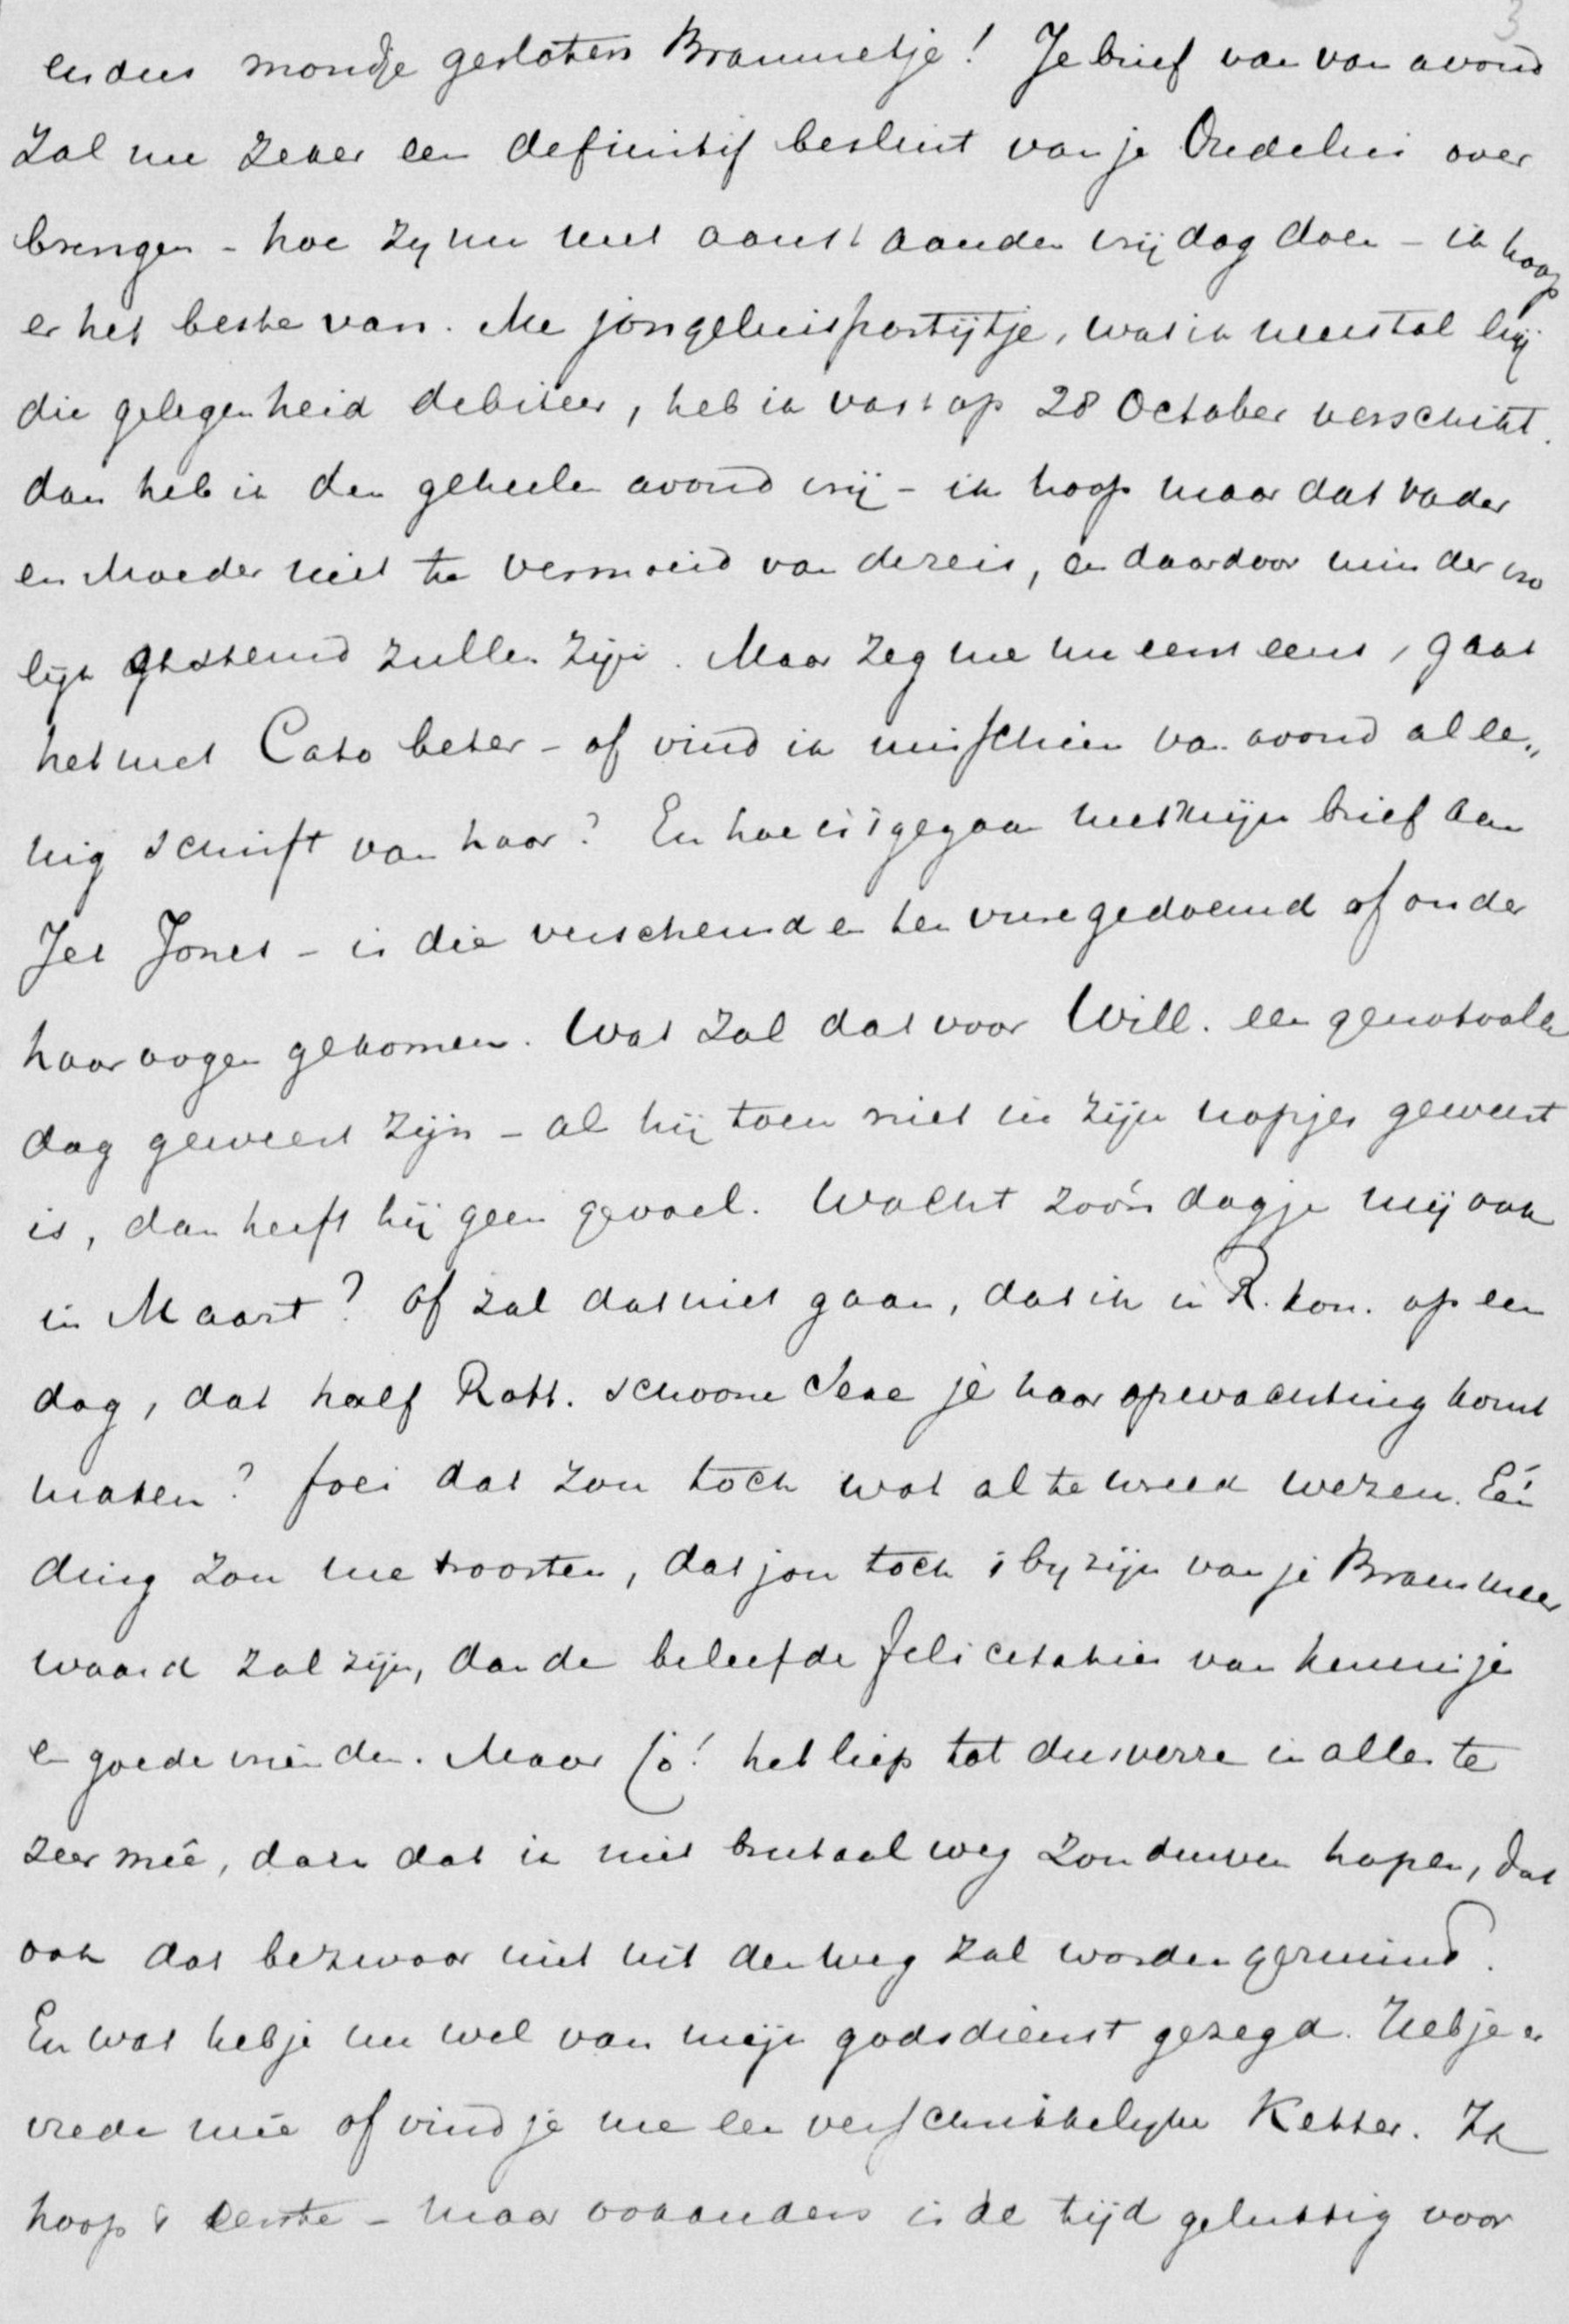 3
en dus mondje gesloten Brammetje! Je brief van van avond
zal me zeker een definitif besluit van je Oudelui over
brengen - hoe zij nu met aanstaanden vrijdag doen - ik hoop
er het beste van. Me jongeluispartijtje, wat ik meestal bij
die gelegenheid debiteer, heb ik vast op 28 October verschikt.
dan heb ik den geheelen avond vrij - ik hoop maar dat vader
en Moeder niet te vermoeid van de reis, en daardoor minder vro
lijk gestemd zullen zijn. Maar zeg me nu eerst eens, gaat
het met Cato beter - of vind ik misschien van avond al le„
nig schrift van haar? En hoe is 't gegaan met mijn brief aan
Jet Jones - is die verscheurd en ten vure gedoemd of onder
haar oogen gekomen. Wat zal dat voor Will. een genotvolle
dag geweest zijn - al hij toen niet in zijn nopjes geweest
is, dan heeft hij geen gevoel. Wacht zoó'n dagje mij ook
in Maart? of zal dat niet gaan, dat ik in R. kom. op een
dag, dat half Rott. schoone Sexe je haar opwachting komt
maken? foei dat zou toch wat al te wreed wezen. Eén
ding zou me troosten, dat jou toch 't bijzijn van je Bram meer
waard zal zijn, dan de beleefde felicitaties van kennisje
en goede vrienden. Maar Jò! het liep tot dusverre in alles te
zeer meê, dan dat ik niet brutaal weg zou durven hopen, dat
ook dat bezwaar niet uit den weg zal worden geruimd.
En wat heb je nu wel van mijn godsdienst gezegd. Heb je er
vrede meê of vind je me een verschrikkelijken Ketter. Ik
hoop 't eerste - maar ook anders is de tijd gelukkig voor